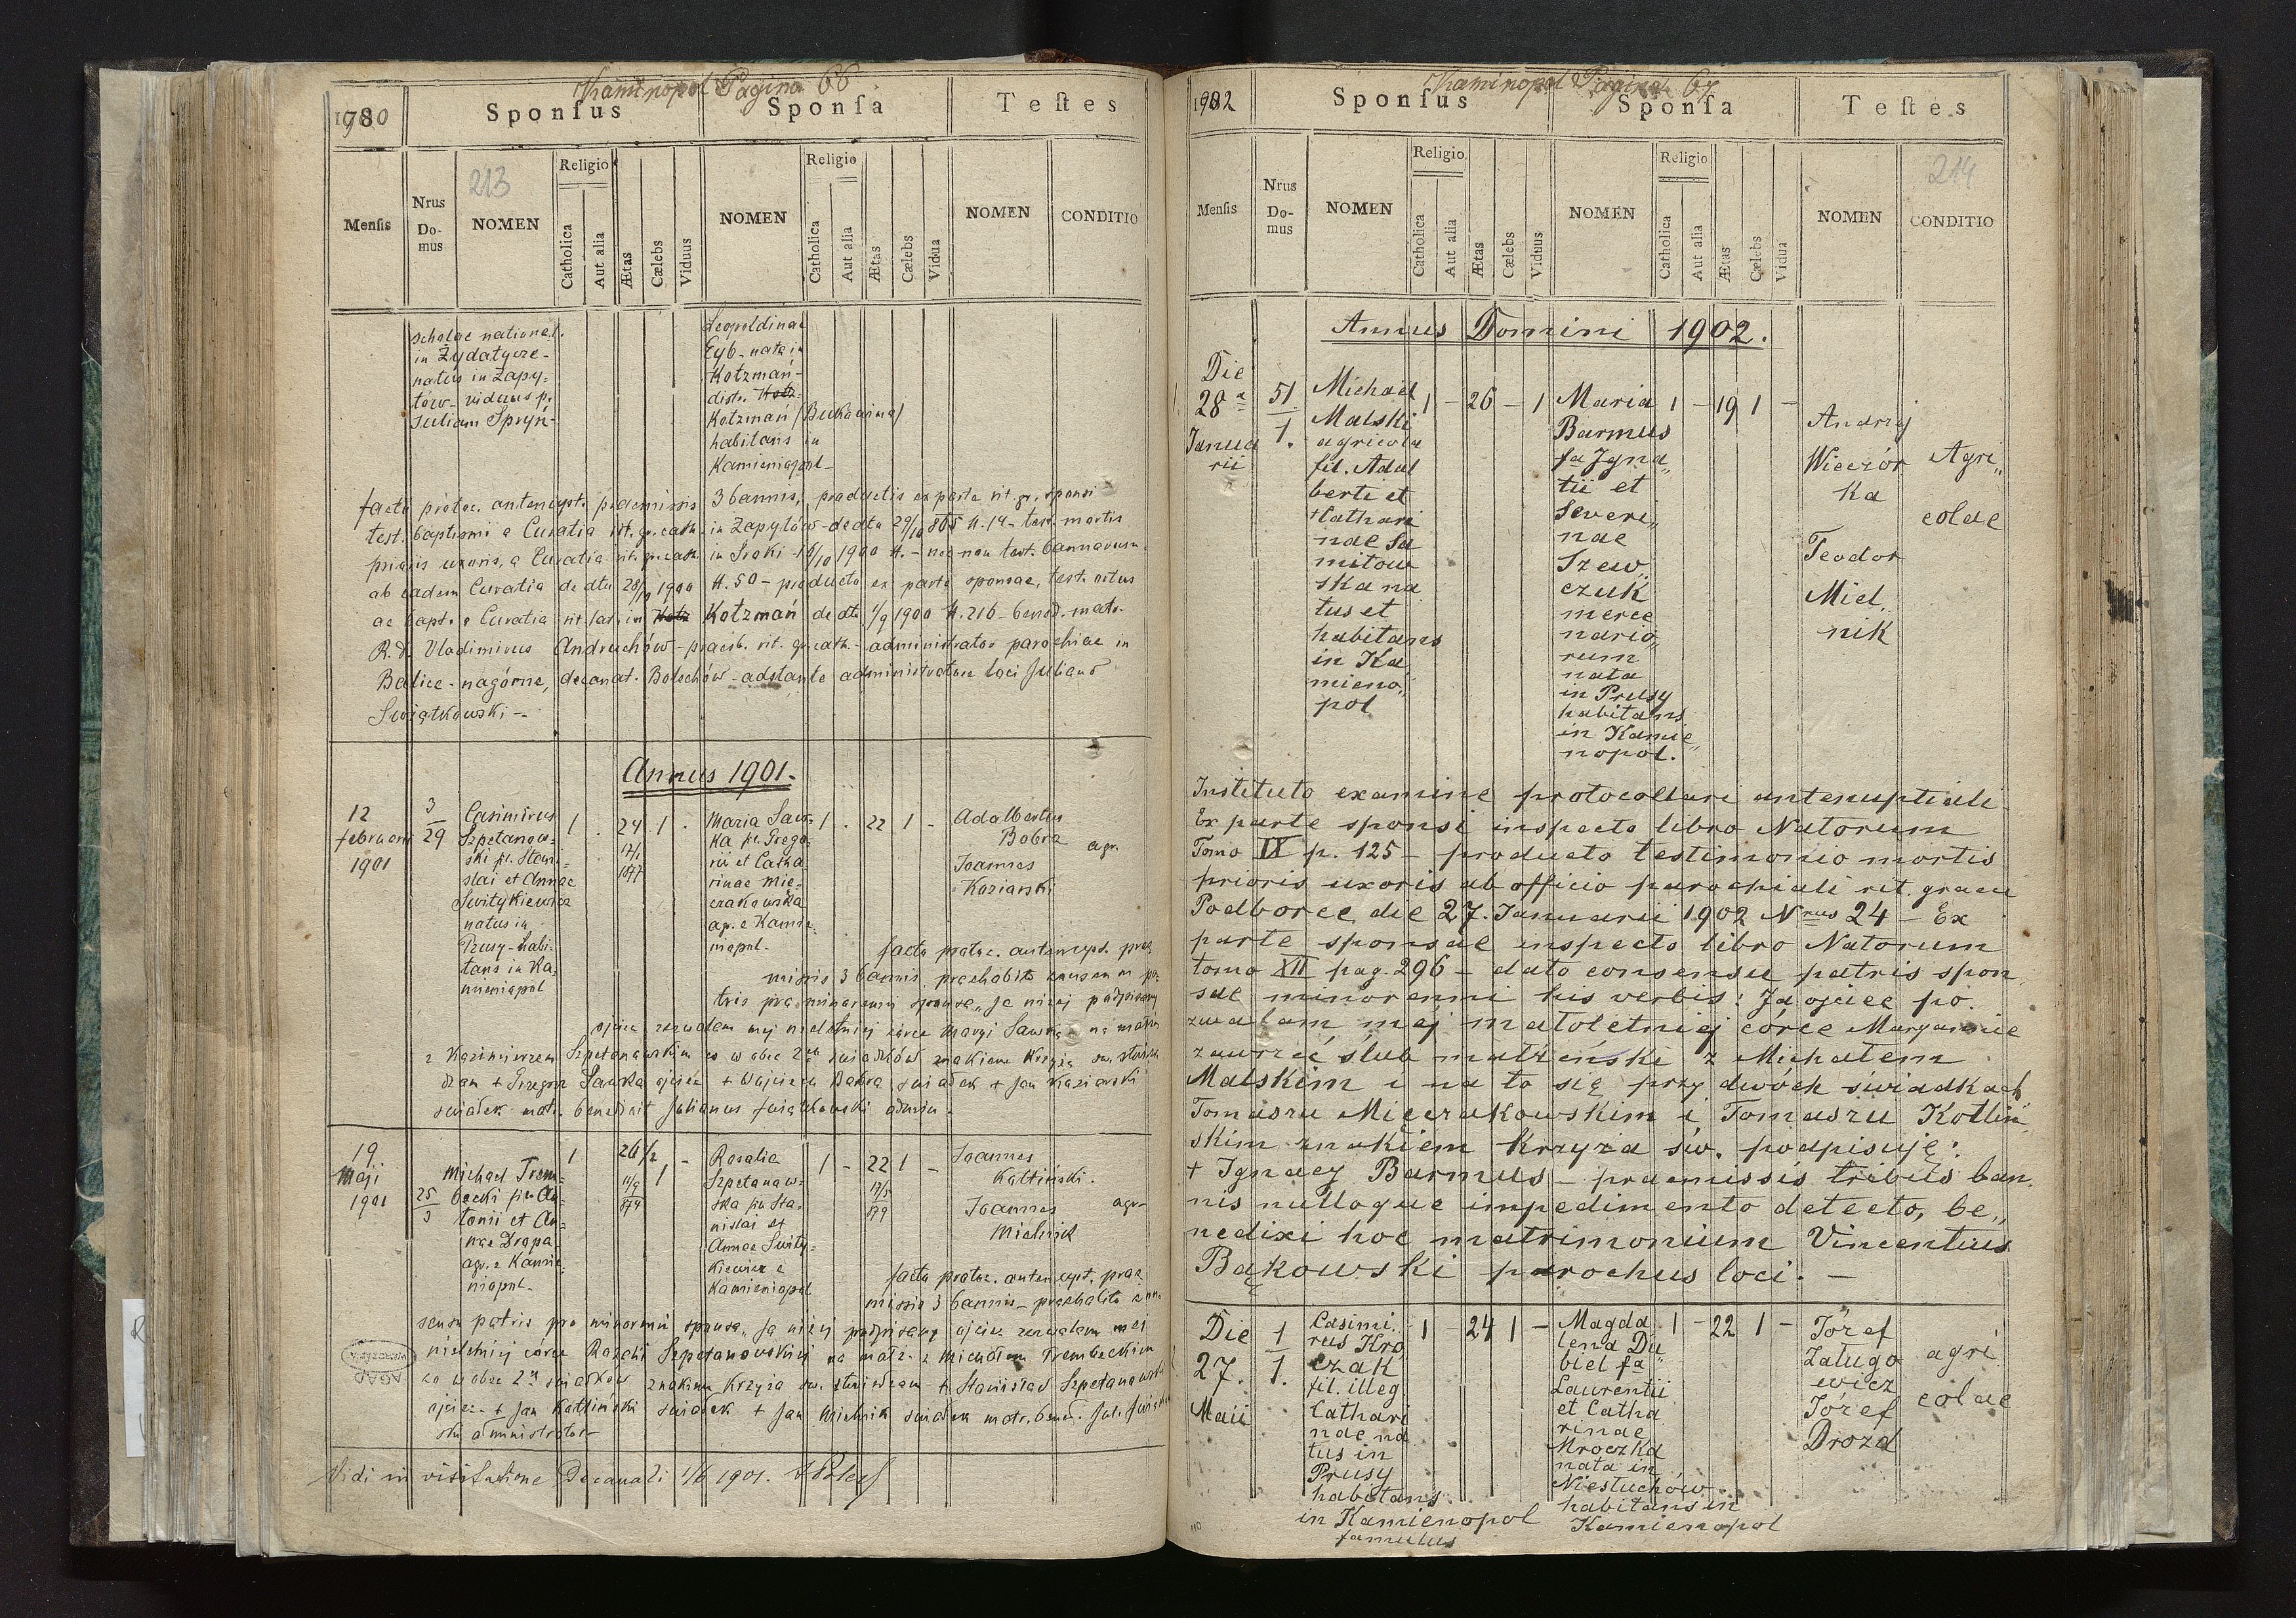 Kaminopol Pagina 66
1900
Sponsus
Sponsa
Testes
Mensis
Nrus Domus
213
NOMEN
Religio
Catholica
Aut alia
Ætas
Cælebs
Viduus
NOMEN
Religio
Catholica
Aut alia
Ætas
Cælebs
Vidua
NOMEN
CONDITIO
scholae national.
in Żydatycze-
natus in Zapy-
tów- viduus p.
Juliam Spryń-
Leopoldinae
Eyb- nata in
Kotzmań-
distr. Kotz-
Kotzmań (Bukowina)
habitans in
Kamieniopol-
facto protoc. antenupt. praemissis 3 bannis, productis ex parte rit. gr. sponsi
test. baptismi a Curatia rit. gr. cath. in Zapytów- de dto 29/10 865 N. 14- test. mortis
prioris uxoris, a Curatia rit. gr. cath. in Sroki- /10 1900 N. - nec non test. bannorum
ab eadem Curatia de dto 28/10 1900 N. 50- producto ex parte sponsae, test. ortus
ac bapt. a Curatia rit. lat. in Kotz Kotzmań de dto /9 1900 N. 216- bened. matr.
R. D. Vladimirus Andruchów- praesb. rit. gr. cath.- administrator parochiae in
Balice- nagórne, decanat. Bolechów- adstante administratore loci Juliano
Swiątkowski-
Annus 1901-
12
februarii
1901
3
29
Casimirus
Szpetanow-
ski fil. Stani-
slai et Annae
Switykiewicz
natus in
Prusy- habi-
tans in Ka-
mieniopol
1 . 24 1 .
17/1
1877
Maria Saw-
ka fil. Grego-
rii et Catha-
rinae Mię-
czakowska
agr. e Kamie-
niopol-
1 . 22 1 -
Adalbertus
Bobra
Joannes
Koziarski
agr.
facto protoc. antenupt. prae-
missis 3 bannis, praehabito consensu pa-
tris pro minorenni sponsa, „Ja niżej podpisany
ojciec zezwalam mej nieletniej córce Maryi Sawka na małżń
z Kazimierzem Szpetanowskim co w obec 2ch świadków znakiem Krzyża św. stwier-
dzam + Grzegorz Sawka ojciec + Wojciech Bobra świadek + Jan Koziarski
świadek- matr. benedixit Julianus Swiątkowski admin.-
19
Maji
1901
25
3
Michael Trem-
becki fil. An-
tonii et An-
nae Drapa
agr. e Kamie-
niopol-
1 26 1/2 - 1
11/9
874
Rosalia
Szpetanow-
ska fil. Sta-
nislai et
Annae Swity-
kiewicz e
Kamieniopol
1 - 22 1 -
17/5
879
Joannes
Katliński.
Joannes
Mielnick
agr-
facto protoc. antenupt. prae-
missis 3 bannis- praehabito con-
sensu patris pro minorenni sponsa, „Ja niżej podpisany ojciec zezwalam mej
nieletniej córce Rozalii Szpetanowskiej na małż. z Michałem Trembeckim
co w obec 2ch świadków znakiem Krzyża św. stwierdzam + Stanisław Szpetanowski
ojciec- + Jan Katliński świadek + Jan Mielnik świadek matr. bened. Jul. Swiątkow-
ski administrator-
Vidi in visitatione Decanali 1/6 1901.
Kaminopol Pagina 67
1902
Sponsus
Sponsa
Testes
Mensis
Nrus Domus
NOMEN
Religio
Catholica
Aut alia
Ætas
Cælebs
Viduus
NOMEN
Religio
Catholica
Aut alia
Ætas
Cælebs
Vidua
NOMEN
214
CONDITIO
Annus Domini 1902.
Die
28a
Janua
rii
51
1.
Michael
Malski
agricola
fil. Adal
berti et
Cathari
nae Sa
mitow
ska na
tus et
habitans
in Ka
mieno„
pol
1 - 26 - 1
Maria
Barmus
fa Igna„
tii et
Severi„
nae
Szew„
czuk
merce
nario„
rum
nata
in Prusy
habitans
in Kamie„
nopol.
1 - 19 1 -
Andrzej
Wieczór
ka
Teodor
Miel„
nik
Agri„
colae
Instituto examine protocollari antenuptiali
Ex parte sponsi inspecto libro Natorum
Tomo IX p. 125 - producto testimonio mortis
prioris uxoris ab officio parochiali rit. graeci
Podborce die 27. Januarii 1902 Nrus 24 - Ex
parte sponsae inspecto libro Natorum
tomo XII pag. 296 - dato consensu patris spon„
sae minorenni his verbis: Ja ojciec po„
zwalam mej małoletniej córce Maryannie
zawrzeć ślub małżeński z Michałem
Malskim i na to się przy dwóch świadkach
Tomaszu Mięczakowskim i Tomaszu Kotliń„
skim znakiem krzyża św. podpisuję:
+ Ignacy Barmus - praemissis tribus ban„
nis nulloque impedimento detecto, be„
nedixi hoc matrimonium Vincentius
Bąkowski parochus loci. -
Die
27.
Maii
1
1.
Casimi„
rus Kro
czak
fil. illeg.
Cathari
nae na
tus in
Prusy
habitans
in Kamienopol
famulus
1 - 24 1 -
Magda
lena Du
biel fa
Laurentii
et Catha
rinae
Mroczka
nata in
Niestuchów
habitans in
Kamienopol
1 - 22 1 -
Józef
Załugo
wicz
Józef
Drozd
agri
colae
110